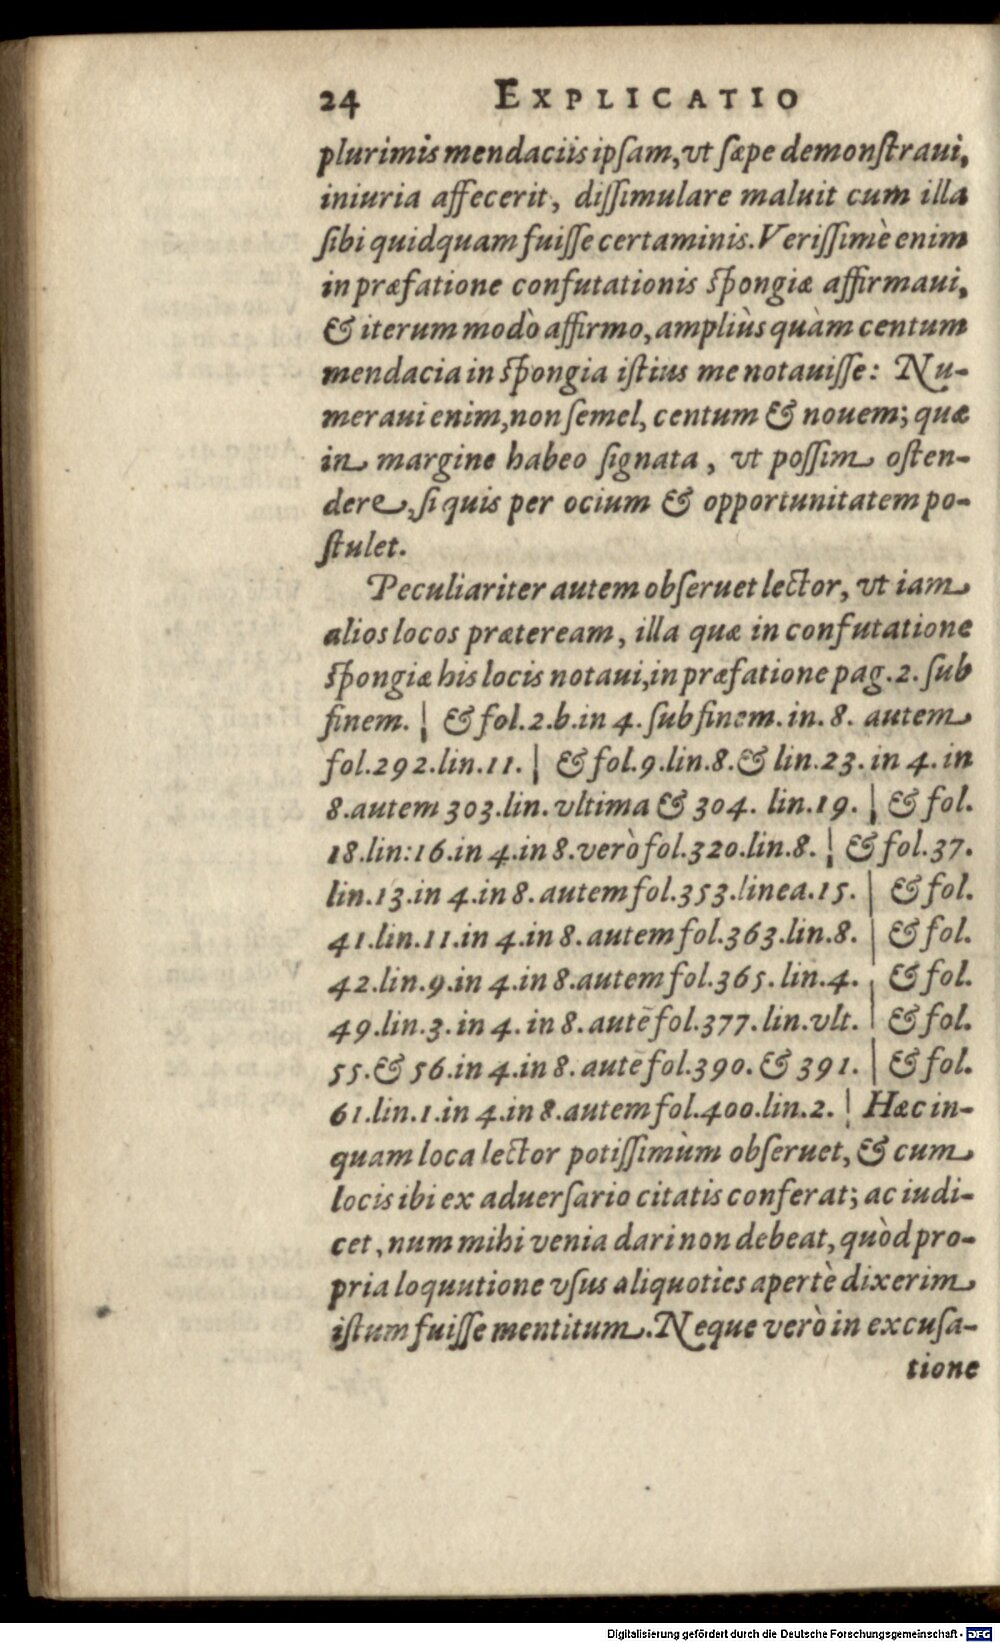 24 EXPLICATIO
plurimis mendaciis ipſam, vt ſæpe demonſtraui,
iniuria affecerit, diſſimulare maluit cum illa
ſibi quidquam fuiſſe certaminis. Veriſſimè enim
in præfatione confutationis ſpongiæ affirmaui,
& iterum modò affirmo, ampliùs quàm centum
mendacia in ſpongia iſtius me notauiſſe: Nu-
meraui enim, non ſemel, centum & nouem; quæ
in margine habeo ſignata, vt poſſim oſten-
dere, ſi quis per ocium & opportunitatem po-
ſtulet.
Peculiariter autem obſeruet lector, vt iam
alios locos præteream, illa quæ in confutatione
ſpongiæ his locis notaui, in præfatione pag. 2. ſub
finem. | & fol. 2. b. in 4. ſub finem. in. 8. autem
fol. 292. lin. 11. | & fol. 9. lin. 8. & lin. 23. in 4. in
8. autem 303. lin. vltima & 304. lin. 19. | & fol.
18. lin: 16. in 4. in 8. verò fol. 320. lin. 8. | & fol. 37.
lin. 13. in 4. in 8. autem fol. 353. linea. 15. | & fol.
41. lin. 11. in 4. in 8. autem fol. 363. lin. 8. | & fol.
42. lin. 9. in 4. in 8. autem fol. 365. lin. 4. | & fol.
49. lin. 3. in 4. in 8. autē fol. 377. lin. vlt. | & fol.
55. & 56. in 4. in 8. autē fol. 390. & 391. | & fol.
61. lin. 1. in 4. in 8. autem fol. 400. lin. 2. | Hæc in-
quam loca lector potiſſimùm obſeruet, & cum
locis ibi ex aduerſario citatis conferat; ac iudi-
cet, num mihi venia dari non debeat, quòd pro-
pria loquutione vſus aliquoties apertè dixerim
iſtum fuiſſe mentitum. Neque verò in excuſa-
tione
Digitalisierung gefördert durch die Deutsche Forschungsgemeinschaft - DFG